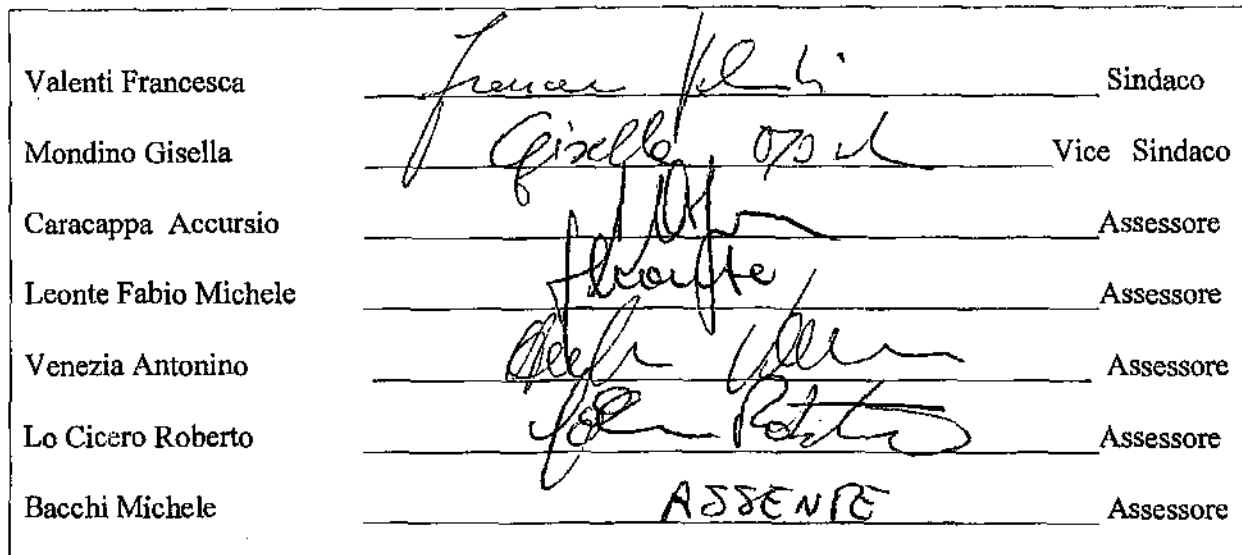 Valenti Francesca Sindaco
Mondino Gisella Gisella Vice Sindaco
Caracappa Accursio Assessore
Leonte Fabio Michele Assessore
Venezia Antonino Assessore
Lo Cicero Roberto Assessore
Bacchi Michele ASSENTE Assessore